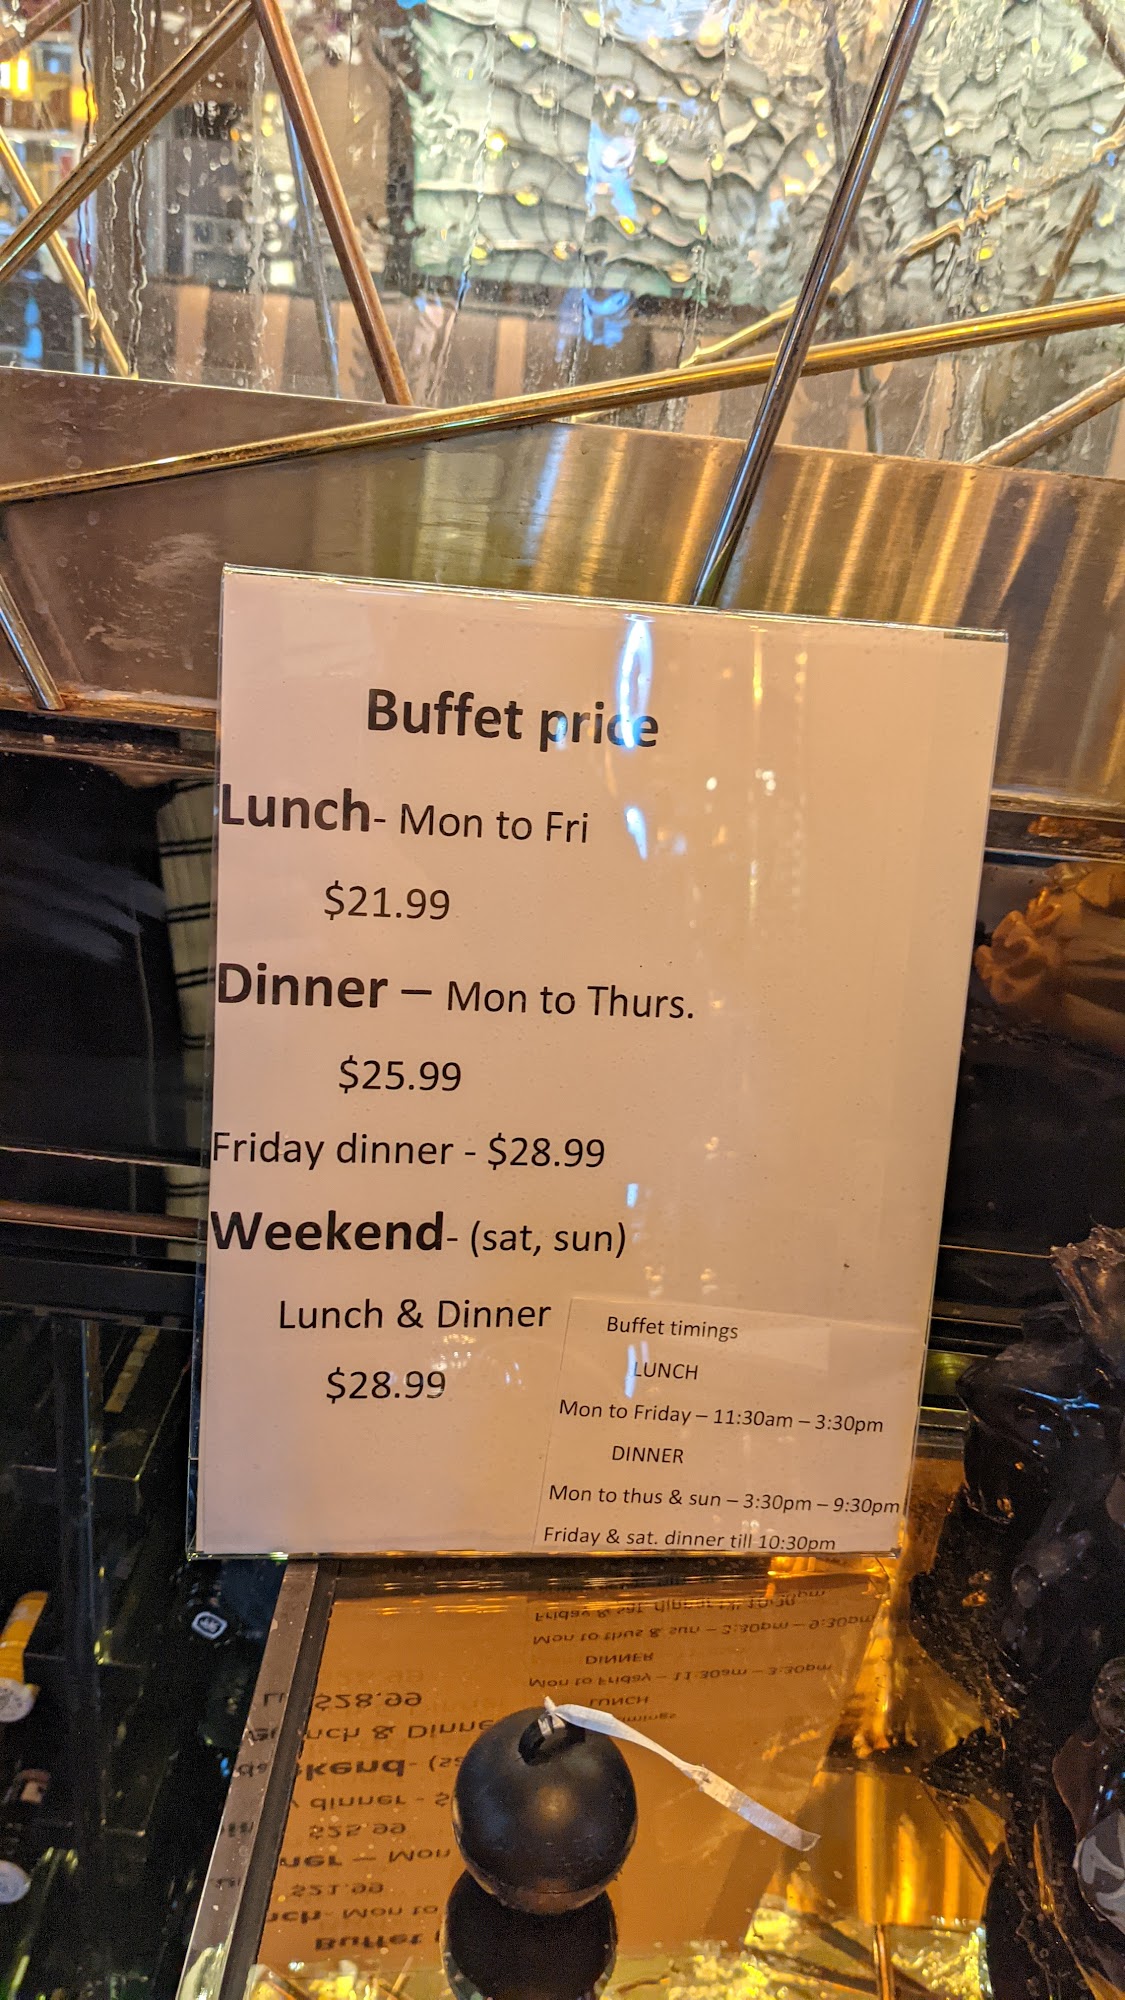 Buffet price
Lunch- Mon to Fri
$21.99
Dinner – Mon to Thurs.
$25.99
Friday dinner - $28.99
Weekend- (sat, sun)
Lunch & Dinner
$28.99
Buffet timings
LUNCH
Mon to Friday – 11:30am – 3:30pm
DINNER
Mon to thus & sun – 3:30pm – 9:30pm
Friday & sat. dinner till 10:30pm